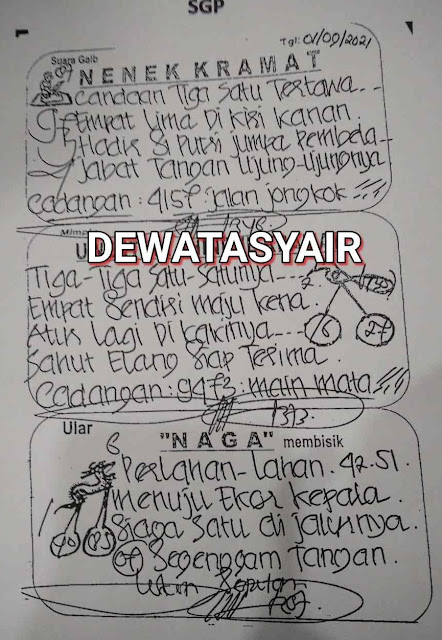 SGP
Tgl: 01/09/2021
Suara Gaib
NENEK KRAMAT
Candaan Tiga Satu Tertawa
Empat Lima Di Kiri Kanan.
Hadir Si Putri jumpa Pembela
Jabat Tangan Ujung-Ujungnya
Cadangan: 4157: jalan jongkok
DEWATASYAIR
Tiga-Tiga Satu-Satunya
Empat Sendiri maju kena
Atur Lagi Di Kakinya
Sahut Elang Siap Terima.
Cadangan: 9473: main mata
Ular
"NAGA" membisik
Perlahan-Lahan. 42.51.
menuju Ekor Kepala.
Siaga Satu di jalurnya.
Segenggam Tangan.